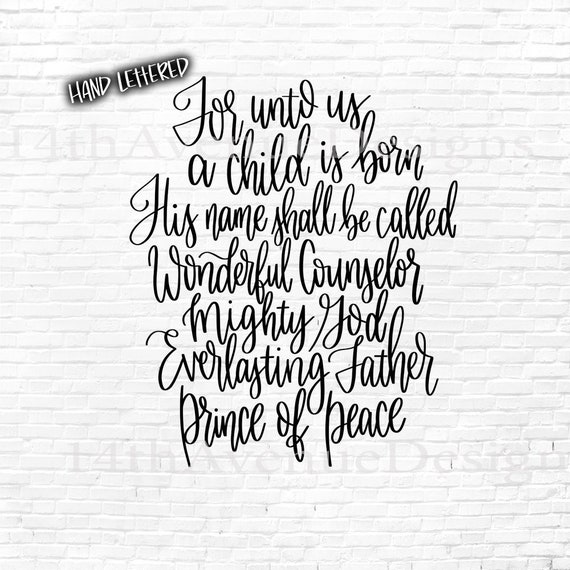 HAND LETTERED
14thAvenueDesigns
For unto us
a child is born
His name shall be called
Wonderful Counselor
Mighty God
Everlasting Father
Prince of Peace
14thAvenueDesign